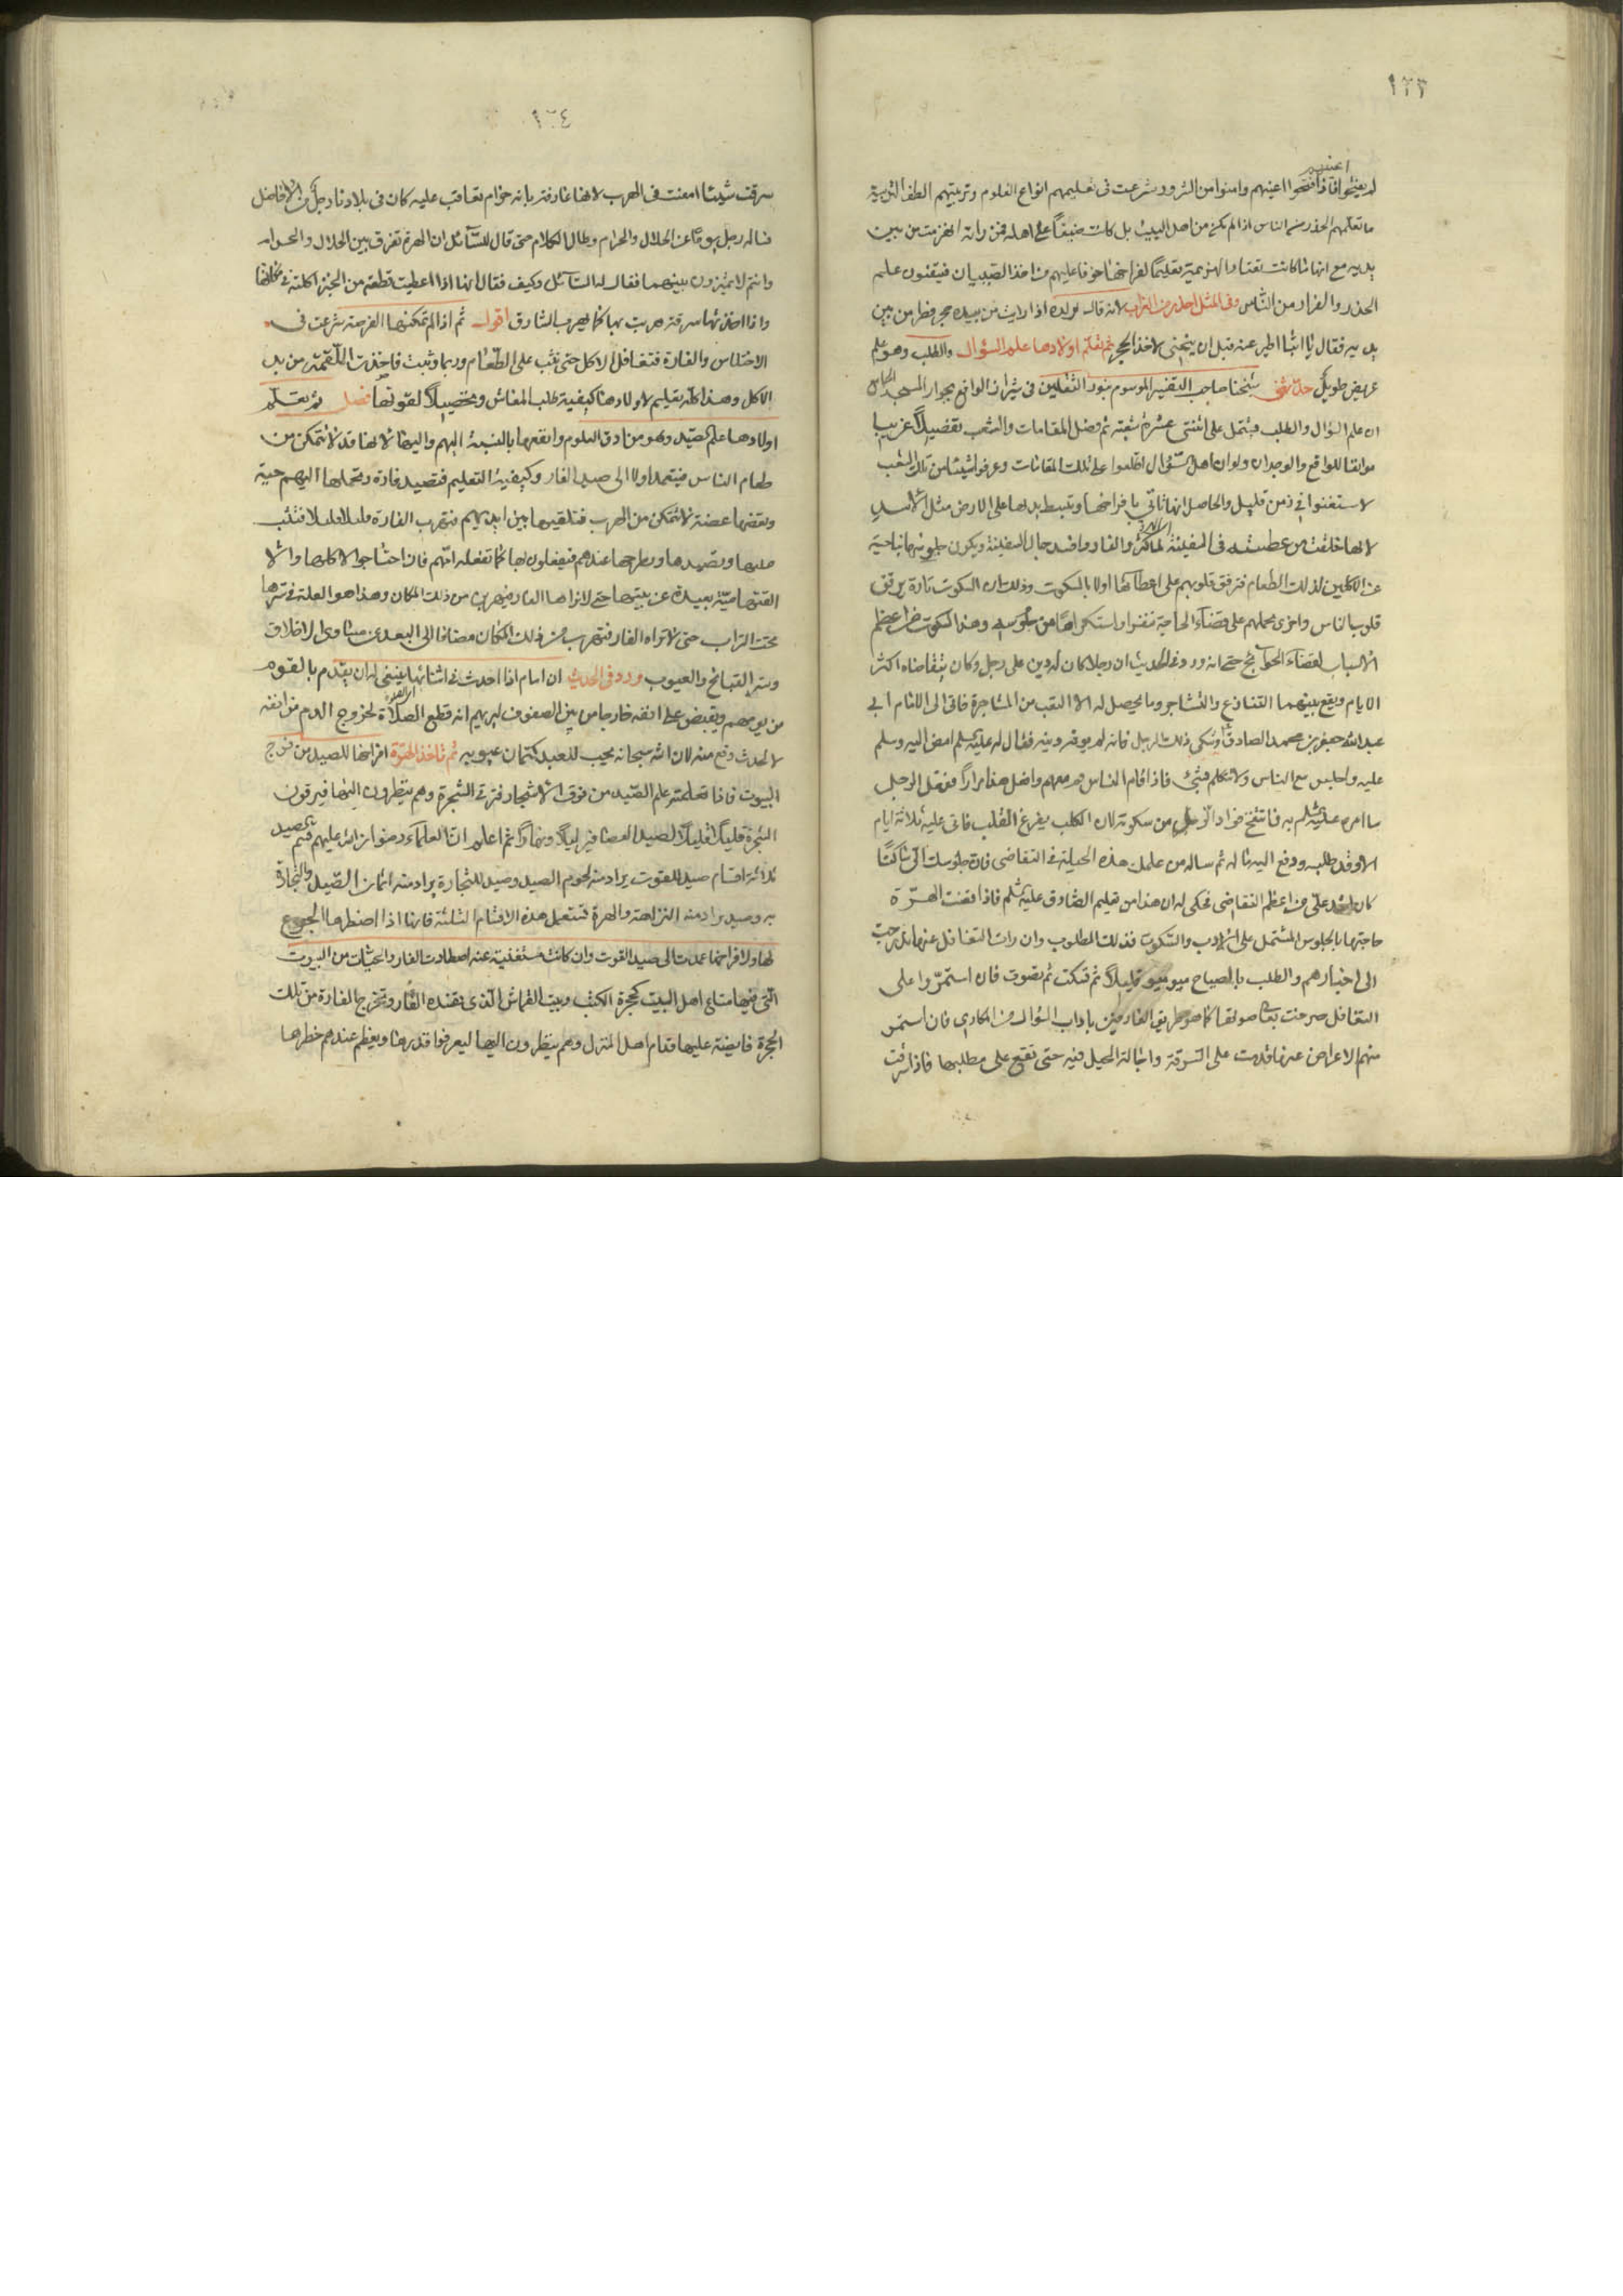 ١٢٣
اعينهم
لم يعيشوا فاذا فتحوا اعينهم وامنوا من الشرور شرعت فى تعليمهم انواع العلوم وتربيتهم الطف التربية
ما تعلمهم الحذر من الناس اذا لم يكن من اهل البيت بل كانت ضيفاً على اهله فمن راته انهزمت من بين
يديه مع انها ما كانت تعتاد الهزيمة تعليماً لفراخها خوفا عليهم من اخذ الصبيان فيتقنون علم
الحذر والفرار من الناس وفى المثل احذر من الغراب لانه قال لولده اذا رايت من بيده حجر فطر من بين
يديه فقال يا ابتا اطير عنه قبل ان ينحنى لاخذ الحجر ثم تعلم اولادها علم السؤال والطلب وهو علم
عريض طويل حدثنى شيخنا صاحب التفسير الموسوم بنور الثقلين فى شيراز الواقع بجوار المسجد الجامع
ان علم السؤال والطلب مشتمل على اثنتى عشرة شعبة ثم فصل المقامات والشعب تفصيلاً غريبا
موافقا للواقع والوجدان ولو ان اهل السؤال اطلعوا على تلك المقامات وعرفوا شيئا من تلك الشعب
لاستغنوا فى زمن قليل والحاصل انها تاتى بافراخها وتبسط يديها على الارض مثل الاسد
لانها خلقت من عطسته فى السفينة لما كثر الفار وافسد حبال السفينة ويكون جلوسها بناحية
عن الآكلين لذلك الطعام فترقق قلوبهم على اعطائها اولا بالسكوت وذلك ان السكوت تارة يرقق
قلوب الناس واخرى يحملهم على قضاء الحاجة تنفرا واستكراها من جلوسه وهذا السكوت من اعظم
الاسباب لقضاء الحوائج حتى انه ورد فى الحديث ان رجلا كان له دين على رجل وكان يتقاضاه اكثر
الايام ويقع بينهما التنازع والتشاجر وما يحصل له الا التعب من المشاجرة فاتى الى الامام ابى
عبد الله جعفر بن محمد الصادق وشكى ذلك الرجل فانه لم يوفه دينه فقال له عليه السلم امض اليه وسلم
عليه واجلس مع الناس ولا تتكلم بشئ فاذا قام الناس قم معهم وافعل هذا مراراً ففعل الرجل
ما امره عليه السلم به فانتفخ فؤاد الرجل من سكوته لان الكلب يفرغ القلب فاتى عليه ثلاثة ايام
الا وقد طلبه ودفع اليه ماله ثم ساله من علمك هذه الحيلة فى التقاضى فان جلوسك الىّ ساكتاً
كان اشد علىّ من اعظم التقاضى فحكى له ان هذا من تعليم الصادق عليه السلم فاذا قضت الهرّة
حاجتها بالجلوس المشتمل على الادب والسكوت فذلك المطلوب وان رات التغافل عنها تدرجت
الى اخبارهم والطلب بالصياح ميوميو قليلاً ثم تسكت ثم تصوت فان استمرّوا على
التغافل صرخت باعلى صوتها كما هو طريق العارفين باداب السؤال من المكادى فان استمر
منهم الاعراض عنها قدمت على السرقة واجالة الحيل فيه حتى تقع على مطلبها فاذا سرقت
١٢٤
سرقت شيئا امعنت فى الهرب لانها عارفة بانه حرام تعاقب عليه كان فى بلادنا رجل من الافاضل
ساله رجل يوما عن الحلال والحرام وطال الكلام حتى قال للسآئل ان الهرة تفرق بين الحلال والحرام
وانتم لا تميزون بينهما فقال له السآئل وكيف فقال انها اذا اعطيت قطعة من الخبز اكلته فى مكانها
واذا اخذتها سرقة هربت بها كما يهرب السارق اقول ثم اذا لم تمكنها الفرصة شرعت فى
الاختلاس والغارة فتغافل الاكل حتى تثب على الطعام وربما وثبت فاخذت اللقمة من يد
الاكل وهذا كله تعليم لاولادها كيفية طلب المعاش وتحصيلاً لقوتها فصل ثم تعلم
اولادها علم الصيد وهو من ادق العلوم وانفعها بالنسبة اليهم واليها لانها قد لا تتمكن من
طعام الناس فيتعمد اولا الى صيد الفار وكيفية التعليم فتصيد فارة وتحملها اليهم حية
وتعضها عضة لا تتمكن من الهرب فتلقيها بين ايديهم فتهرب الفارة قليلا قليلا فتثب
عليها وتصيدها وتطرحها عندهم فيفعلون بها كما تفعله امهم فان احتاجوا لاكلها والا
القتها ميتة بعيدة عن بيتها حتى لا تراها الفار فيهربن من ذلك المكان وهذا هو العلة فى سترها
تحت التراب حتى لا تراه الفار فتهرب من ذلك المكان مضافا الى البعد عن مساوى الاخلاق
وستر القبائح والعيوب ورد فى الحديث ان امام اذا احدث فى اثنائها ينبغى له ان يقدم بالقوم
من يؤمهم ويقبض على انفه خارجا من بين الصفوف ليريهم انه قطع الصلاة لخروج الدم من انفه
لا لحدث وقع منه لان الله سبحانه يحب للعبد كتمان عيوبه ثم تاخذ الهرة افراخها للصيد من فروج
البيوت فاذا تعلمته علم الصيد من فوق الاشجار فترقى الشجرة وهم ينظرون اليها فيرقون
الشجرة قليلاً قليلاً لصيد العصافير ليلاً ونهاراً ثم اعلم ان العلماء رضوان الله عليهم قسم الصيد
ثلاثة اقسام صيد للقوت يراد منه لحوم الصيد وصيد للتجارة يراد منه اثمان الصيد والتجارة
به وصيد يراد منه النزاهة والهرة تستعمل هذه الاقسام الثلثة فانها اذا اضطرها الجوع
لها ولافراخها عمدت الى صيد القوت وان كانت مستغنية عنه اصطادت الفار والحيات من البيوت
التى فيها متاع اهل البيت كحجرة الكتب وبيت القماش الذى يفسده الفار وتخرج الفارة من تلك
الحجرة قابضة عليها قدام اهل المنزل وهم ينظرون اليها ليعرفوا قدرها ويعظم عندهم خطرها